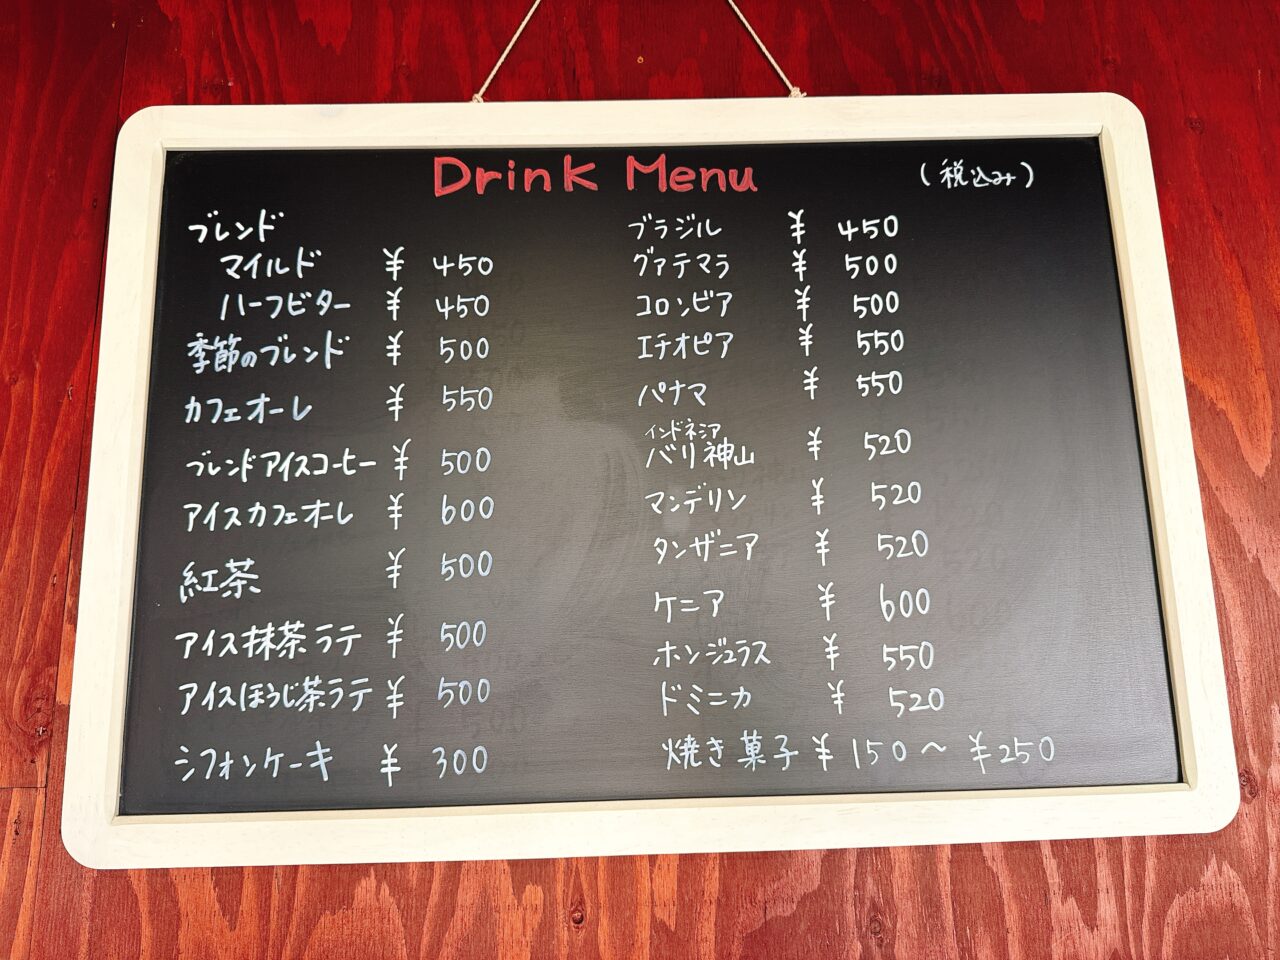 Drink Menu
(税込み)
ブレンド
マイルド ¥ 450
ハーフビター ¥ 450
季節のブレンド ¥ 500
カフェオーレ ¥ 550
ブレンドアイスコーヒー ¥ 500
アイスカフェオーレ ¥ 600
紅茶 ¥ 500
アイス抹茶ラテ ¥ 500
アイスほうじ茶ラテ ¥ 500
シフォンケーキ ¥ 300
ブラジル ¥ 450
グァテマラ ¥ 500
コロンビア ¥ 500
エチオピア ¥ 550
パナマ ¥ 550
インドネシア
バリ神山 ¥ 520
マンデリン ¥ 520
タンザニア ¥ 520
ケニア ¥ 600
ホンジュラス ¥ 550
ドミニカ ¥ 520
焼き菓子 ¥ 150 ～ ¥ 250